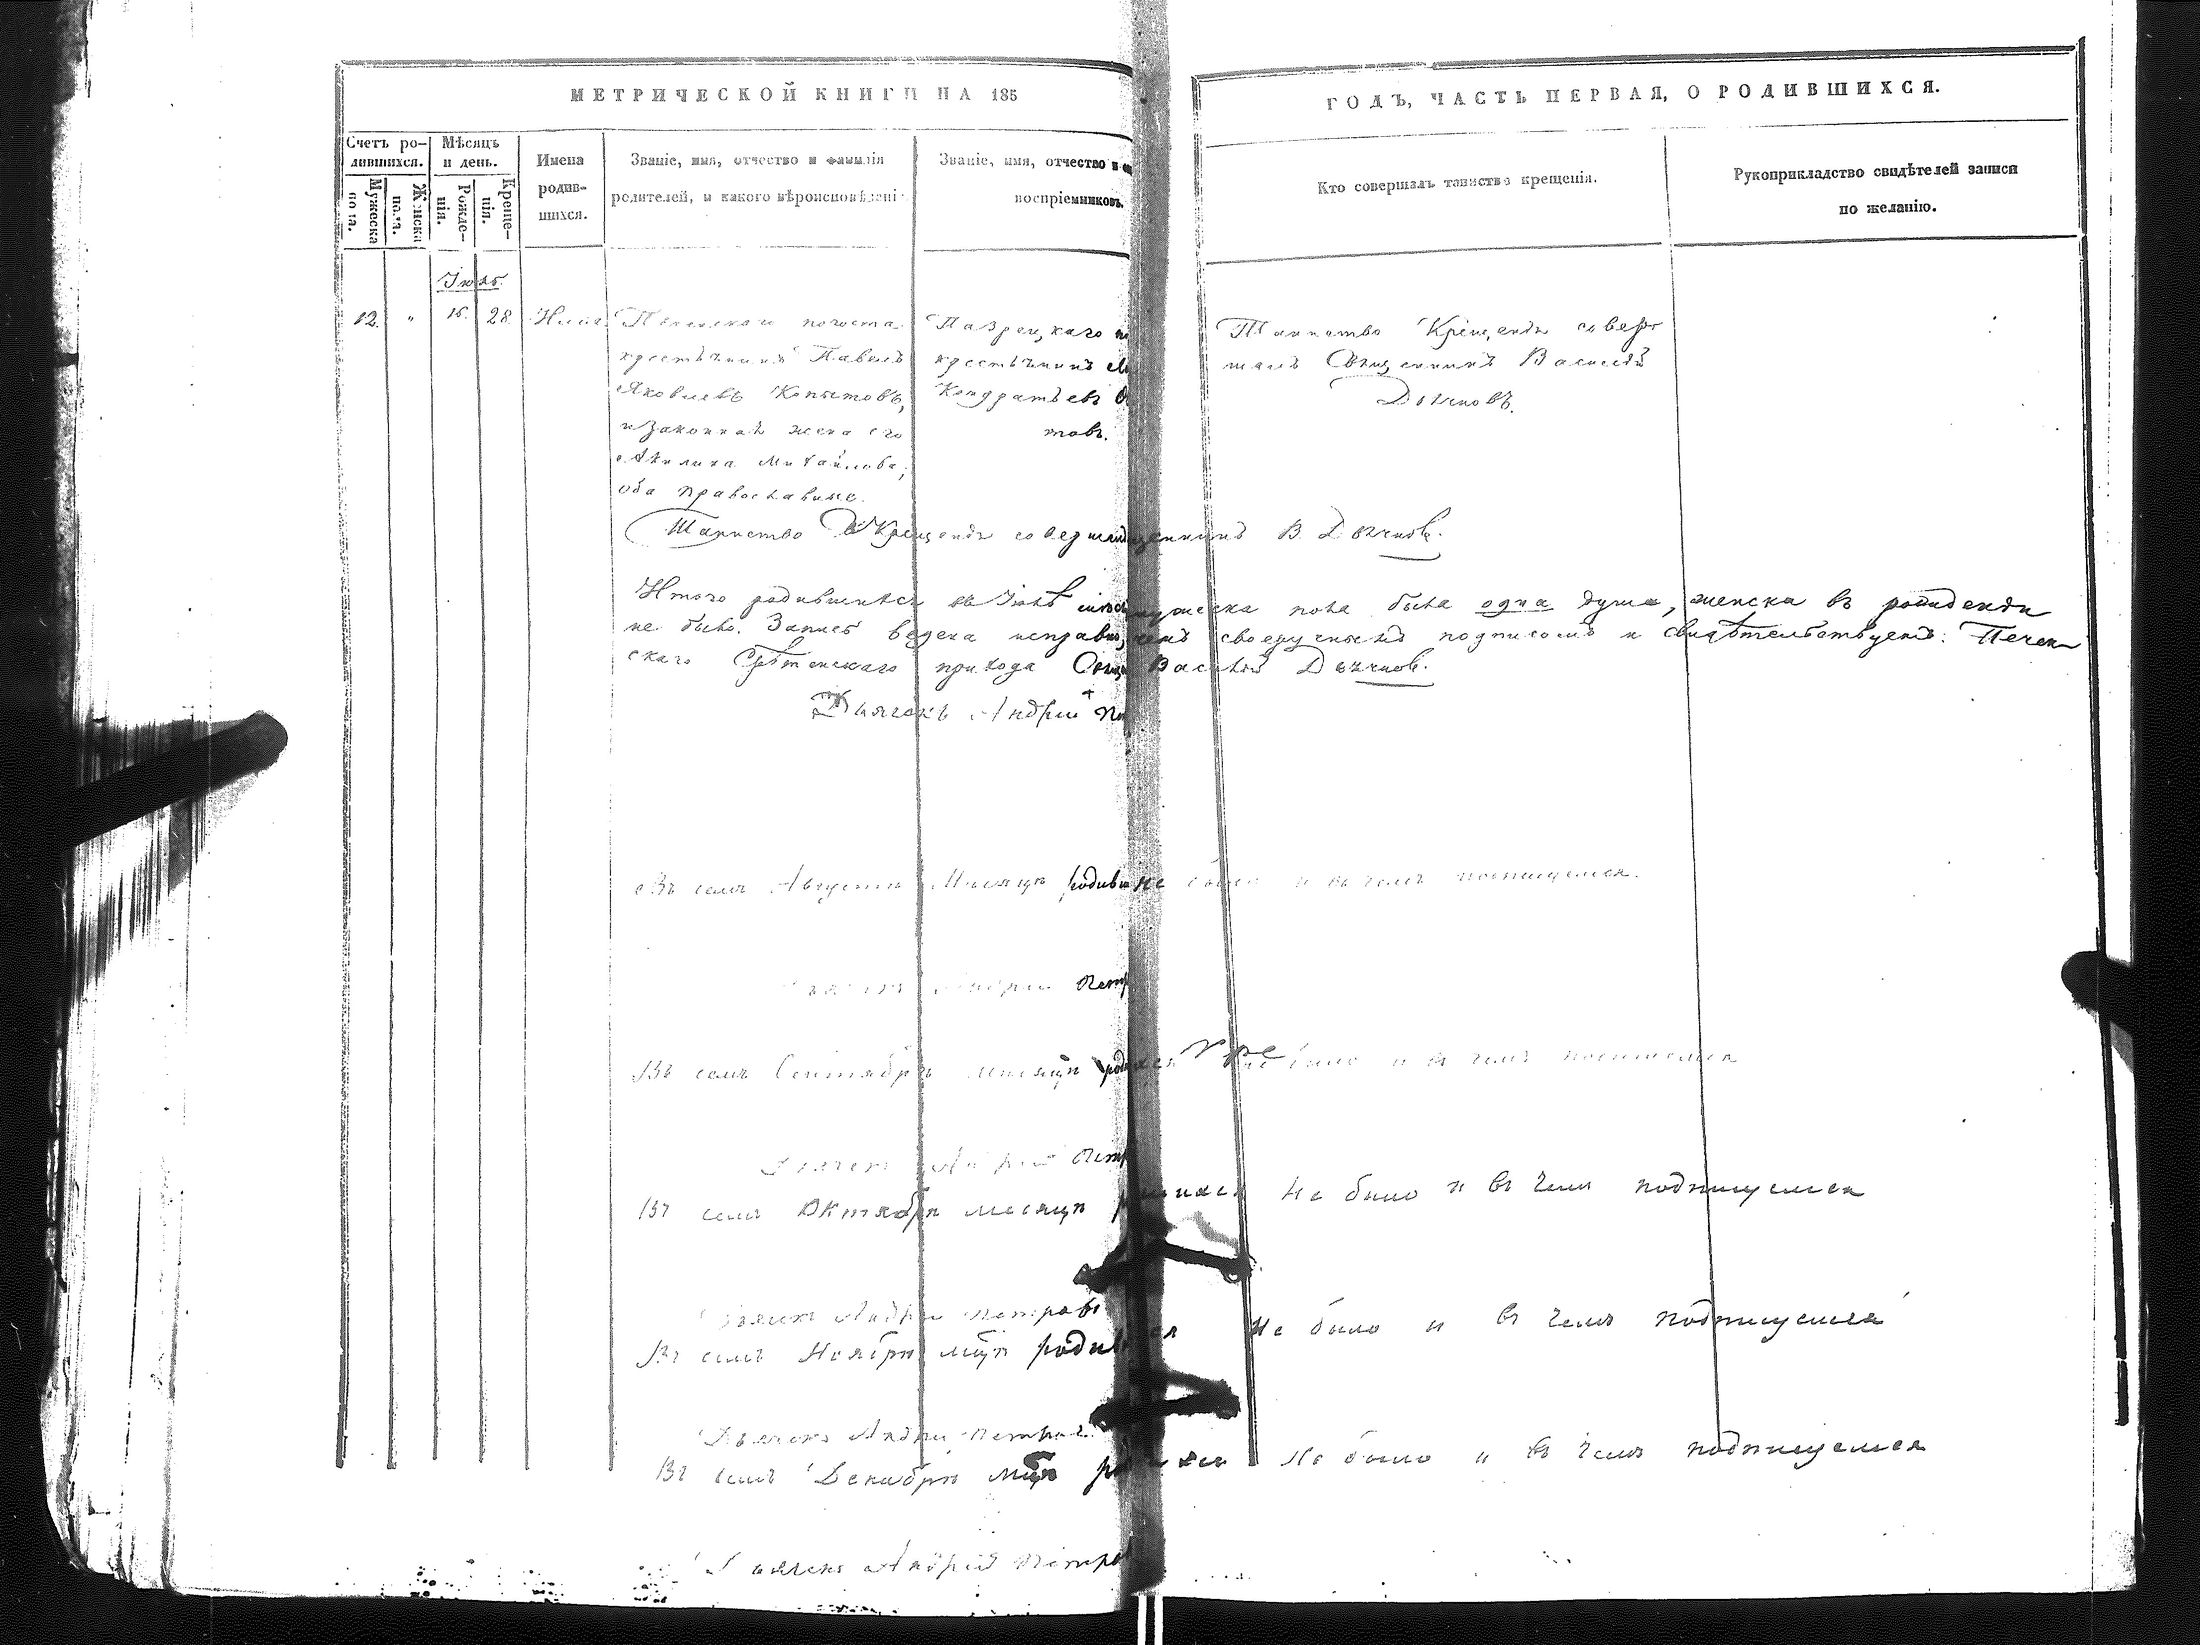 МЕТРИЧЕСКОЙ КНИГИ НА 185
ГОДЪ, ЧАСТЬ ПЕРВАЯ, О РОДИВШИХСЯ.
Счетъ ро-
дившихся.
Мужеска
пола.
Женска
пола.
Мѣсяцъ
и день.
Рожде-
нія.
Креще-
нія.
Имена
родив-
шихся.
Званіе, имя, отчество и фамилія
родителей, и какого вѣроисповѣдані
Званіе, имя, отчество и
воспріемниковъ.
Кто совершалъ таинство крещенія.
Рукоприкладство свидѣтелей записи
по желанію.
Іюль.
12. " 28
погоста
крестьянинъ Павелъ
Яковлевъ Копытовъ,
и законная жена его
Акилина Михайлова,
оба православные.
Пазрецкаго
крестьянинъ
Кондратьевъ
товъ.
Таинство Крещенія совер
шалъ Священникъ Василій
Дьячковъ.
Таинство Крещенія В. Дьячковъ.
Итого родившихся въ Іюлѣ мужеска пола была одна душа, женска въ рожденіи
не было. Запись ведена исправно, своеручнымъ подписомъ и свидѣтельствуемъ: Печен-
скаго Срѣтенскаго прихода Василій Дьячковъ.
Дьячекъ Андрій
Въ семъ Августѣ Месяцѣ родив не было и въ чемъ посписуемся.
Андрій Петр
Въ семъ Сентябрѣ месяцѣ не было и въ чемъ
Дьячекъ Андрій Петр
Въ семъ Октябрѣ месяцѣ Не было и въ чемъ подписуемся
Дьячекъ Андрій Петровъ
Въ семъ Ноябрѣ мцѣ родил Не было и въ чемъ подписуемся
Дьячекъ Андрій Петров
Въ семъ Декабрѣ мцѣ Не было и въ чемъ подписуемся
Дьячекъ Андрій Петро